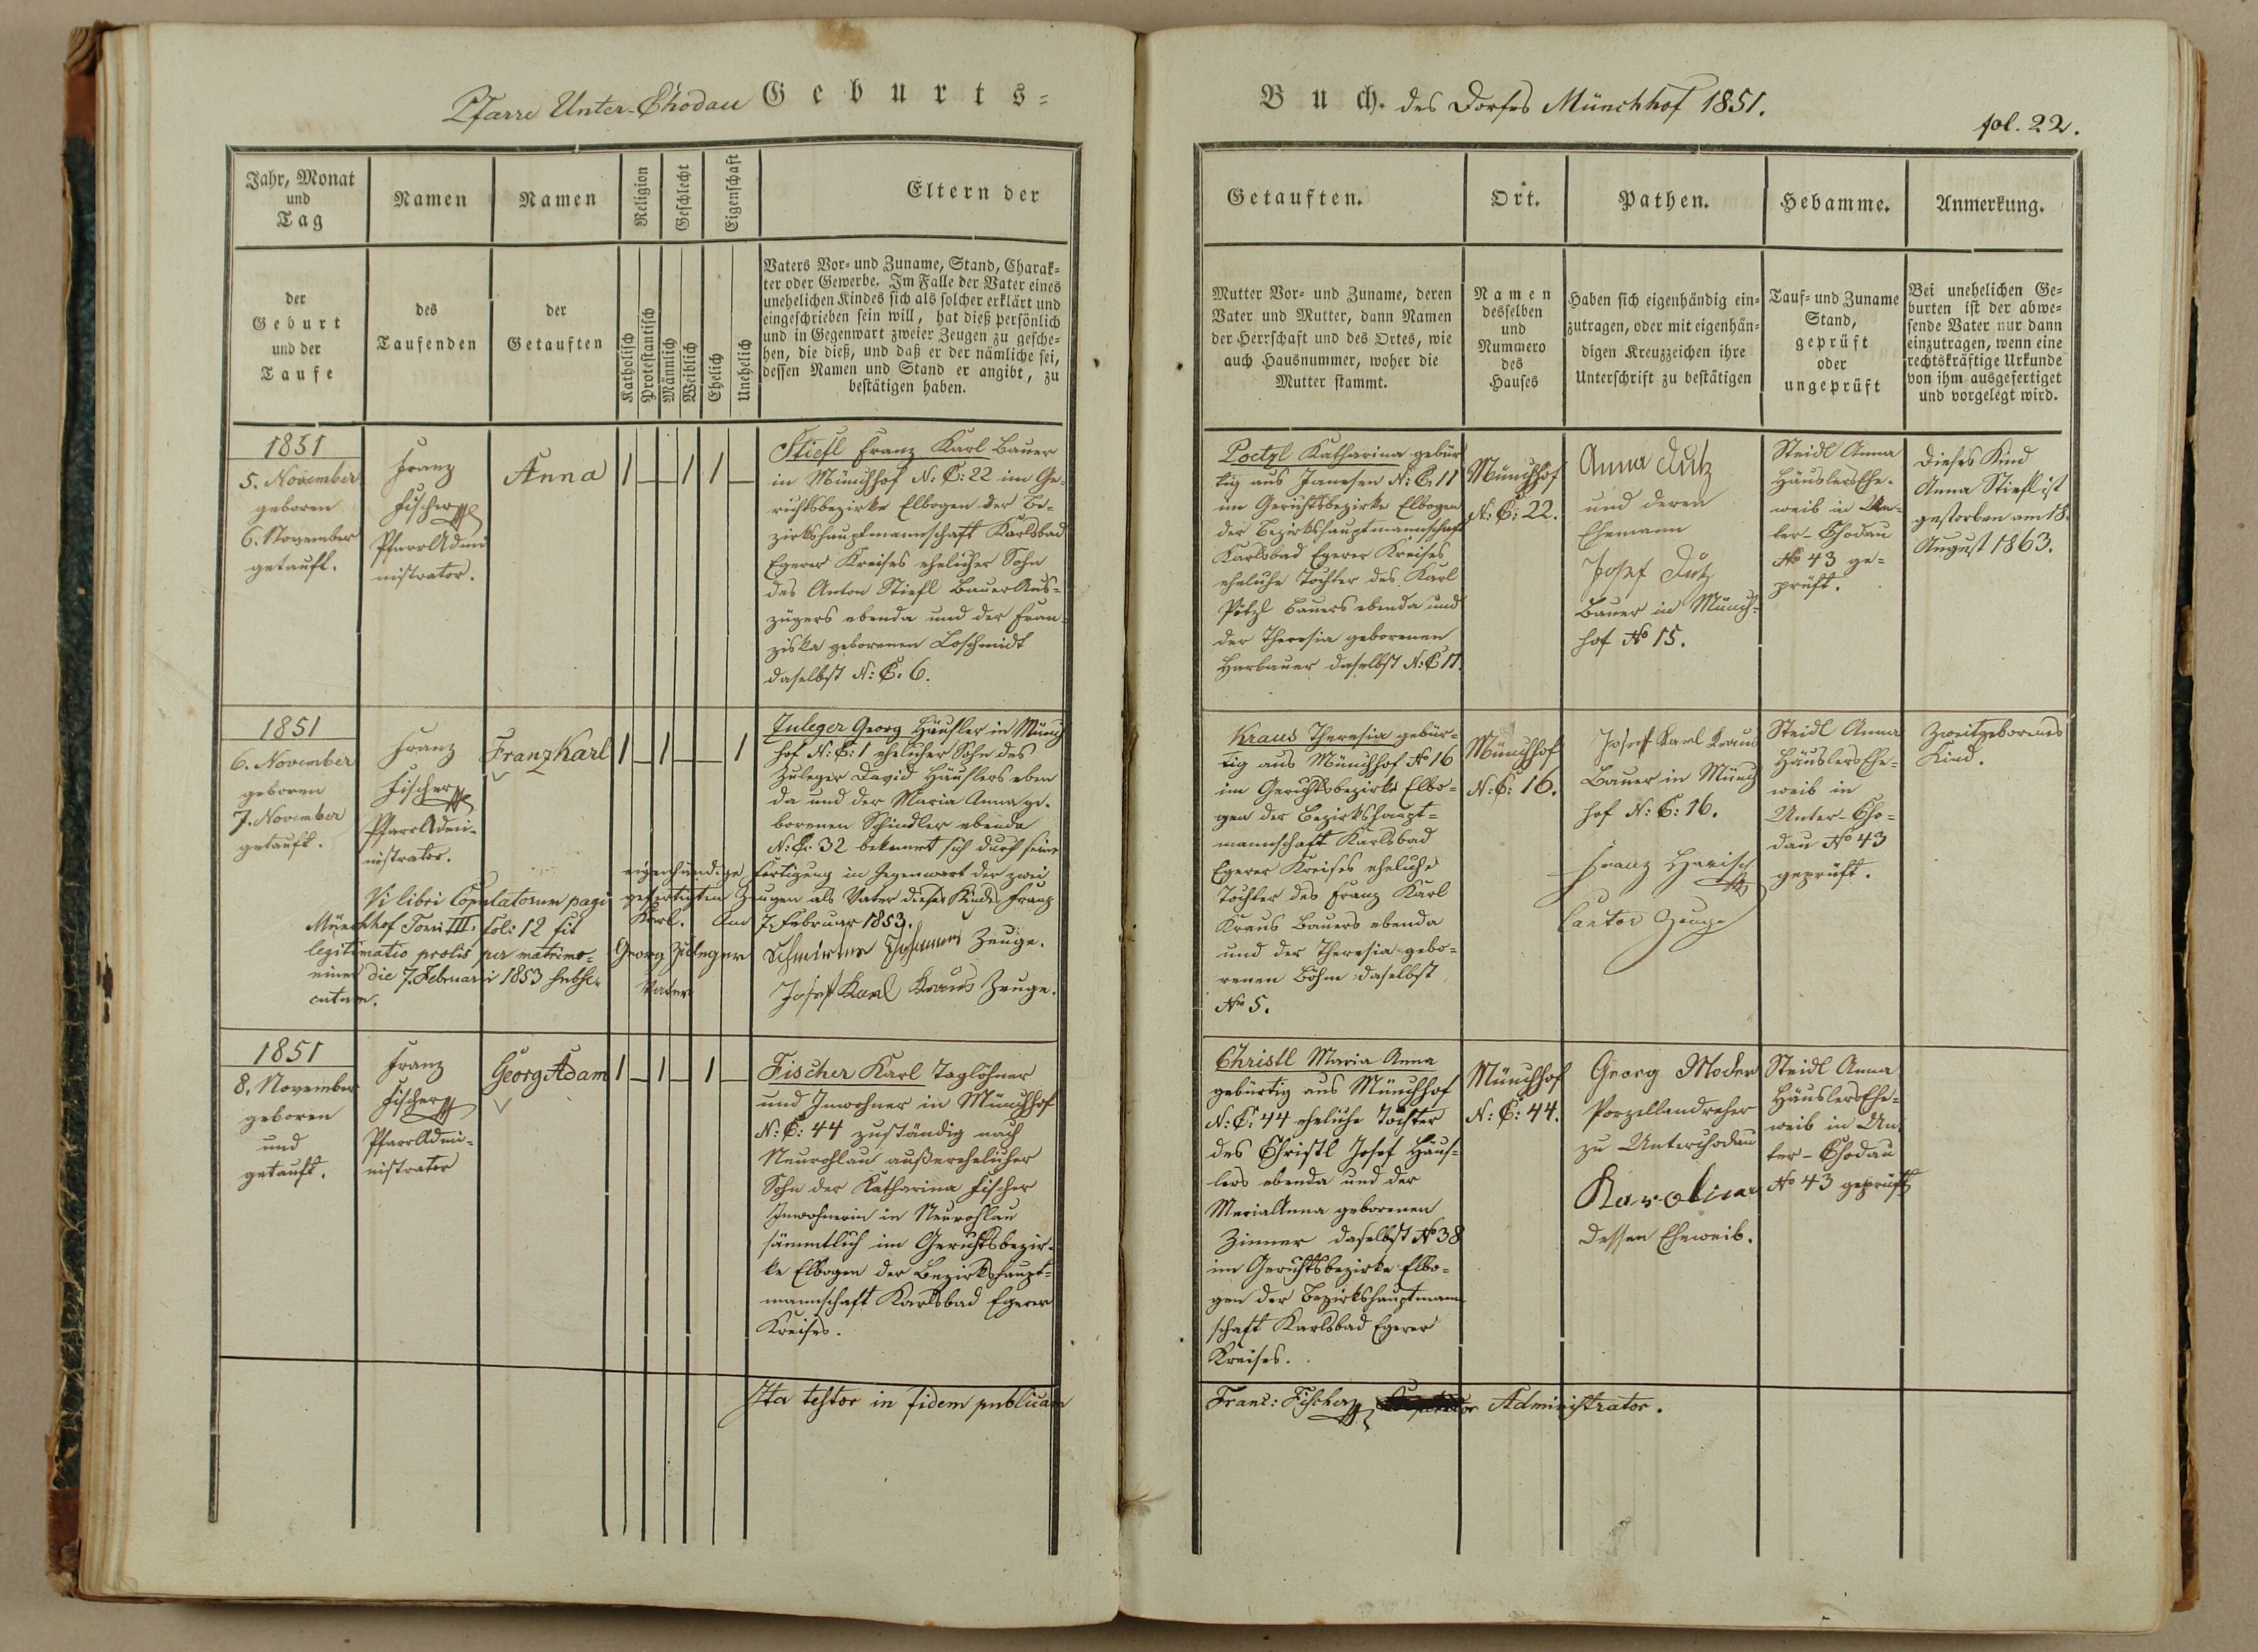 Pfarre Unter-Chodau Geburts-
Buch. des Dorfes Münchhof 1851.
fol. 22.
Jahr, Monat
und
Tag
Namen
Namen
Religion
Geschlecht
Eigenschaft
Eltern der
der
Geburt
und der
Taufe
des
Taufenden
der
Getauften
Katholisch
Protestantisch
Männlich
Weiblich
Ehelich
Unehelich
Vaters Vor- und Zuname, Stand, Charak-
ter oder Gewerbe. Im Falle der Vater eines
unehelichen Kindes sich als solcher erklärt und
eingeschrieben sein will, hat dieß persönlich
und in Gegenwart zweier Zeugen zu gesche-
hen, die dieß, und daß er der nämliche sei,
dessen Namen und Stand er angibt, zu
bestätigen haben.
Getauften.
Ort.
Pathen.
Hebamme.
Anmerkung.
Mutter Vor- und Zuname, deren
Vater und Mutter, dann Namen
der Herrschaft und des Ortes, wie
auch Hausnummer, woher die
Mutter stammt.
Namen
desselben
und
Nummero
des
Hauses
Haben sich eigenhändig ein-
zutragen, oder mit eigenhän-
digen Kreuzzeichen ihre
Unterschrift zu bestätigen
Tauf- und Zuname
Stand,
geprüft
oder
ungeprüft
Bei unehelichen Ge-
burten ist der abwe-
sende Vater nur dann
einzutragen, wenn eine
rechtskräftige Urkunde
von ihm ausgefertiget
und vorgelegt wird.
1851
5. November
geboren
6. November
getauft.
Franz
Fischer
PfarrAdmi
nistrator.
Anna
1 — 1 1 —
Stiefl Franz Karl Bauer
in Münchhof N: C: 22 im Ge-
richtsbezirke Elbogen der Be-
zirkshauptmannschaft Karlsbad
Egerer Kreises ehelicher Sohn
des Anton Stiefl BauerAus-
zügers ebenda und der Fran-
ziska geborenen Loschmidt
daselbst N: C. 6.
Poetzl Katharina gebür
tig aus Janesen N: C. 11
im Gerichtsbezirke Elbogen
der Bezirkshauptmannschaft
Karlsbad Egerer Kreises
eheliche Tochter des Karl
Pötzl Bauers ebenda und
der Theresia geborenen
Harbauer daselbst N: C 11.
Münchhof
N: C: 22.
Anna Lutz
und deren
Ehemann
Josef Lutz
Bauer in Münch-
hof No 15.
Steidl Anna
HäuslersEhe-
weib in Un-
ter-Chodau
No 43 ge-
prüft.
Dieses Kind
Anna Stiefl ist
gestorben am 18.
August 1863.
1851
6. November
geboren
7. November
getauft.
Franz
Fischer
PfarrAdmi-
nistrator.
Franz Karl
1 — 1 — — 1
Zuleger Georg Häusler in Münch
hof N: C: 1 ehelicher Sohn des
Zuleger David Häuslers eben
da und der Maria Anna ge-
borenen Schindler ebenda
N: C: 32 bekennt sich durch seine
eigenhändige Fertigung in Gegenwart der zwei
gefertigten Zeugen als Vater dieses Kindes Franz
Karl. Am 7. Februar 1853.
Georg Zuleger
Vater
Johannes Zeuge.
Josef Karl Kraus Zeuge.
Vi libri Copulatorum pagi
Münchhof Tom: III. fol: 12 fit
legitimatio prolis per matrimo-
nium die 7. Februarii 1853 subse-
cutum.
Kraus Theresia gebür-
tig aus Münchhof No 16
im Gerichtsbezirke Elbo-
gen der Bezirkshaupt-
mannschaft Karlsbad
Egerer Kreises eheliche
Tochter des Franz Karl
Kraus Bauers ebenda
und der Theresia gebo-
renen Böhm daselbst
No 5.
Münchhof
N: C: 16.
Josef Karl Kraus
Bauer in Münch
hof N: C: 16.
Franz
Cantor Zeuge
Steidl Anna
HäuslersEhe-
weib in
Unter-Cho-
dau No 43
geprüft.
Zweitgeborenes
Kind.
1851
8. November
geboren
und
getauft.
Franz
Fischer
PfarrAdmi-
nistrator
Georg Adam
1 — 1 — 1 —
Fischer Karl Taglöhner
und Inwohner in Münchhof
N: C: 44 zuständig nach
Neurohlau außerehelicher
Sohn der Katharina Fischer
Inwohnerin in Neurohlau
sämmtlich im Gerichtsbezir-
ke Elbogen der Bezirkshaupt-
mannschaft Karlsbad Egerer
Kreises.
Christl Maria Anna
gebürtig aus Münchhof
N: C: 44 eheliche Tochter
des Christl Josef Häus-
lers ebenda und der
MariaAnna geborenen
Zinner daselbst No 38
im Gerichtsbezirke Elbo-
gen der Bezirkshauptmann
schaft Karlsbad Egerer
Kreises.
Münchhof
N: C: 44.
Georg Moder
Porzellandreher
zu Unterchodau
Karolina
dessen Eheweib.
Steidl Anna
HäuslersEhe-
weib in Un-
ter-Chodau
No 43 geprüft
Ita testor in fidem publicam
Franc: Fischer Administrator.